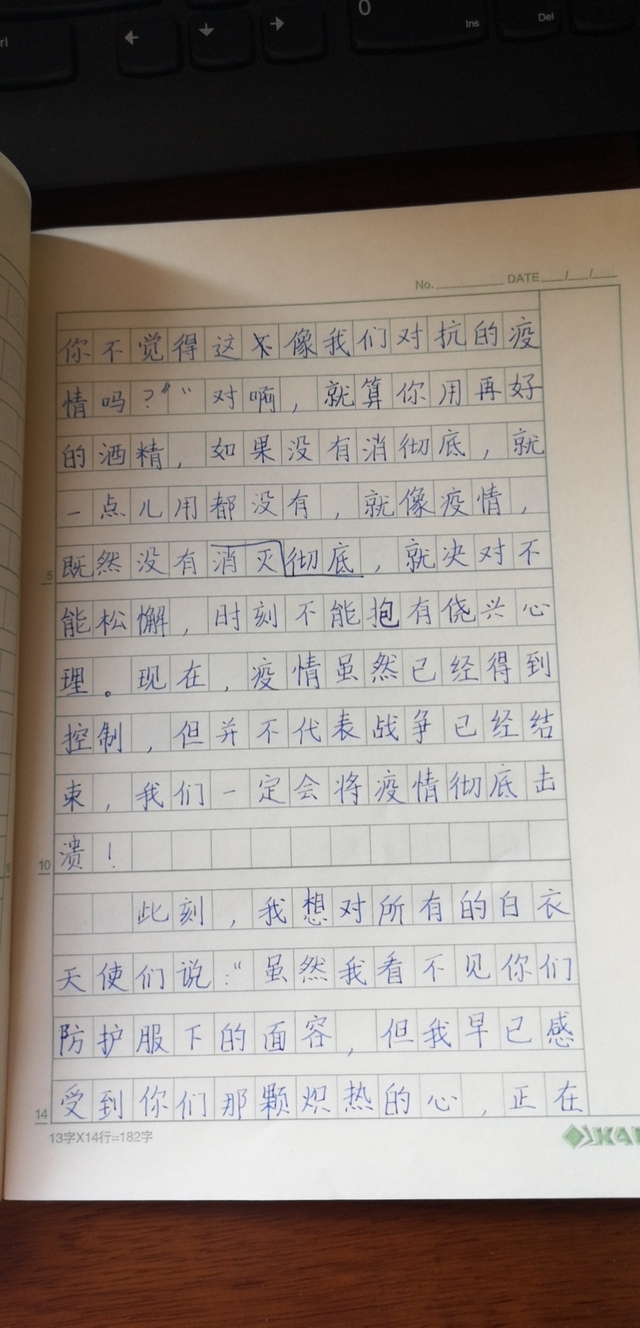 Ins
Del
0
No. DATE / /
你不觉得这不像我们对抗的疫
情吗？”“对啊，就算你用再好
的酒精，如果没有消彻底，就
一点儿用都没有，就像疫情，
既然没有消灭彻底，就决对不
5
能松懈，时刻不能抱有侥兴心
理。现在，疫情虽然已经得到
控制，但并不代表战争已经结
束，我们一定会将疫情彻底击
溃！
10
此刻，我想对所有的白衣
天使们说：“虽然我看不见你们
防护服下的面容，但我早已感
受到你们那颗炽热的心，正在
14
13字X14行=182字